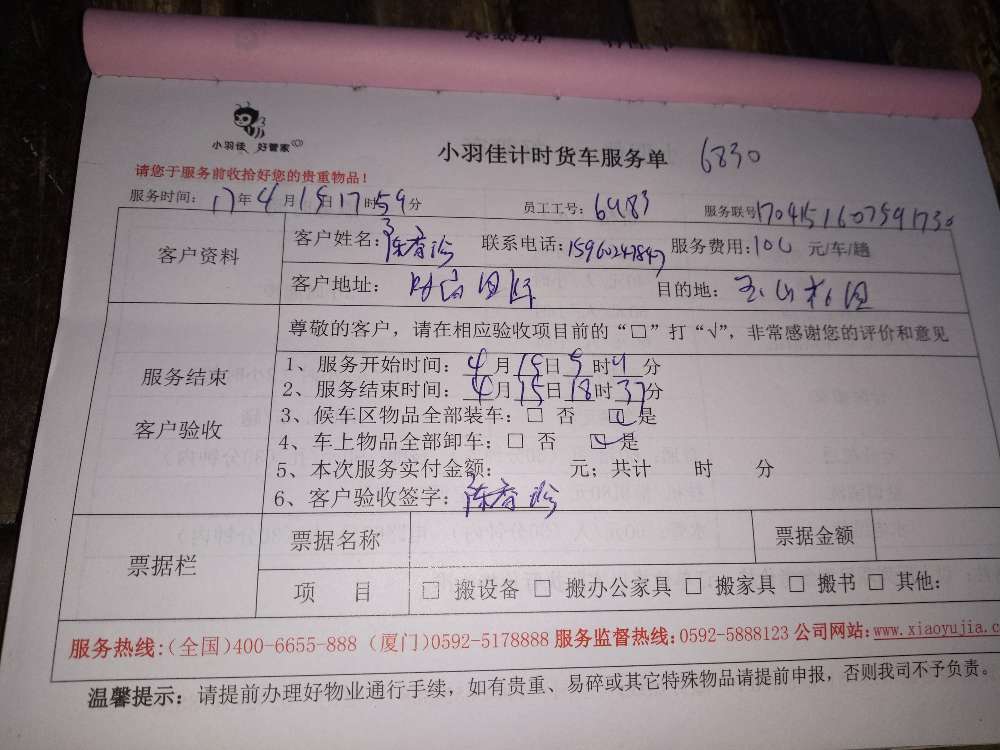 小羽佳 好管家
小羽佳计时货车服务单 6830
请您于服务前收拾好您的贵重物品！
服务时间：17年4月15日17时59分 员工工号：6983 服务联号
客户资料
客户姓名：陈香 联系电话：15960247847 服务费用：100 元/车/趟
客户地址： 目的地：
尊敬的客户，请在相应验收项目前的“□”打“√”，非常感谢您的评价和意见
服务结束
客户验收
1、服务开始时间：4月15日 时 分
2、服务结束时间：4月15日18时37分
3、候车区物品全部装车：□ 否 □ 是
4、车上物品全部卸车：□ 否 □ 是
5、本次服务实付金额： 元；共计 时 分
6、客户验收签字：陈香
票据栏
票据名称 票据金额
项 目 □ 搬设备 □ 搬办公家具 □ 搬家具 □ 搬书 □ 其他：
服务热线：（全国）400-6655-888（厦门）0592-5178888 服务监督热线：0592-5888123 公司网站：www.xiaoyujia.c
温馨提示：请提前办理好物业通行手续，如有贵重、易碎或其它特殊物品请提前申报，否则我司不予负责。